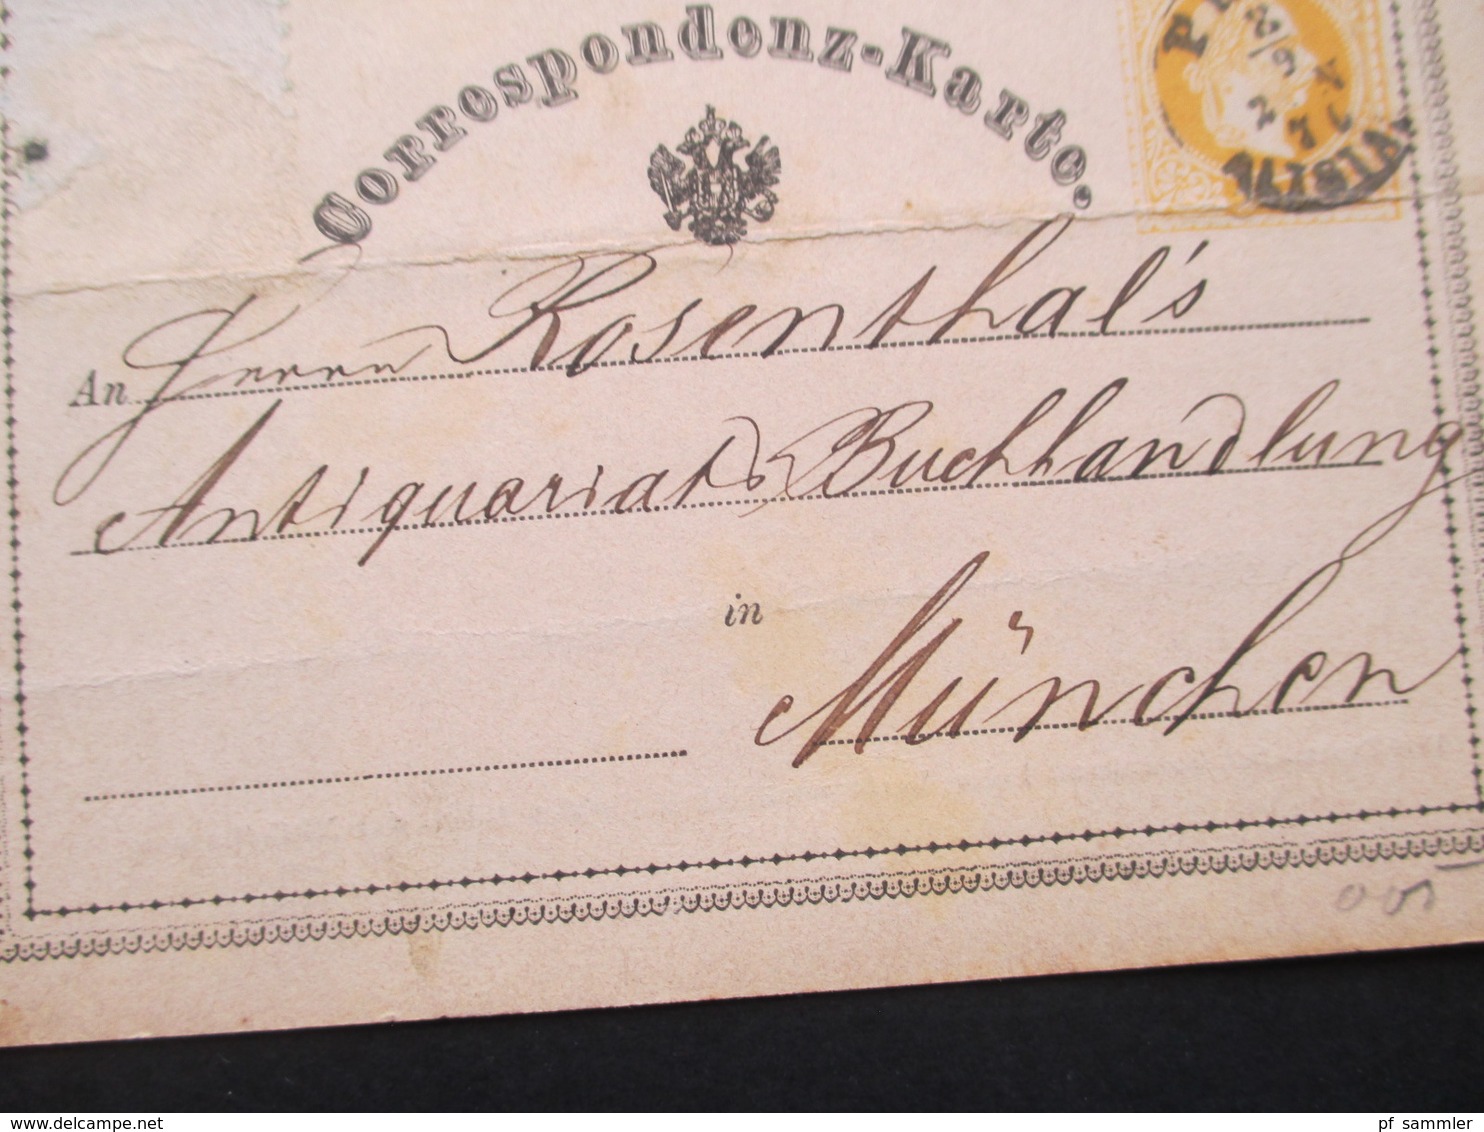 Correspondenz-Karte.
An Herrn Rosenthal's
Antiquariats Buchhandlung
in München
MISIA
www.delcampe.net
pf_sammler